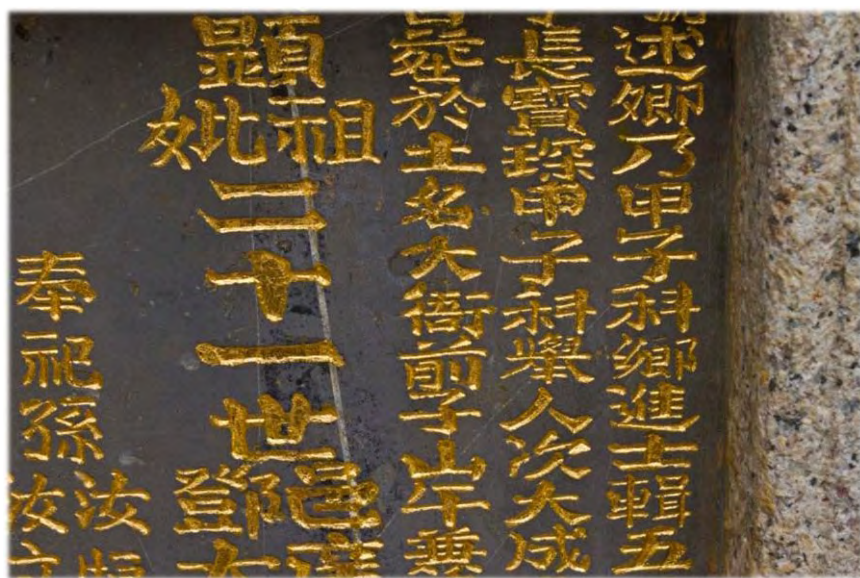 述卿乃甲子科鄉進士輯五
長寶琛甲子科舉人次大成
葬於土名大衙前子山午兼
顯祖妣二十一世邑鄧
奉祀孫汝汝